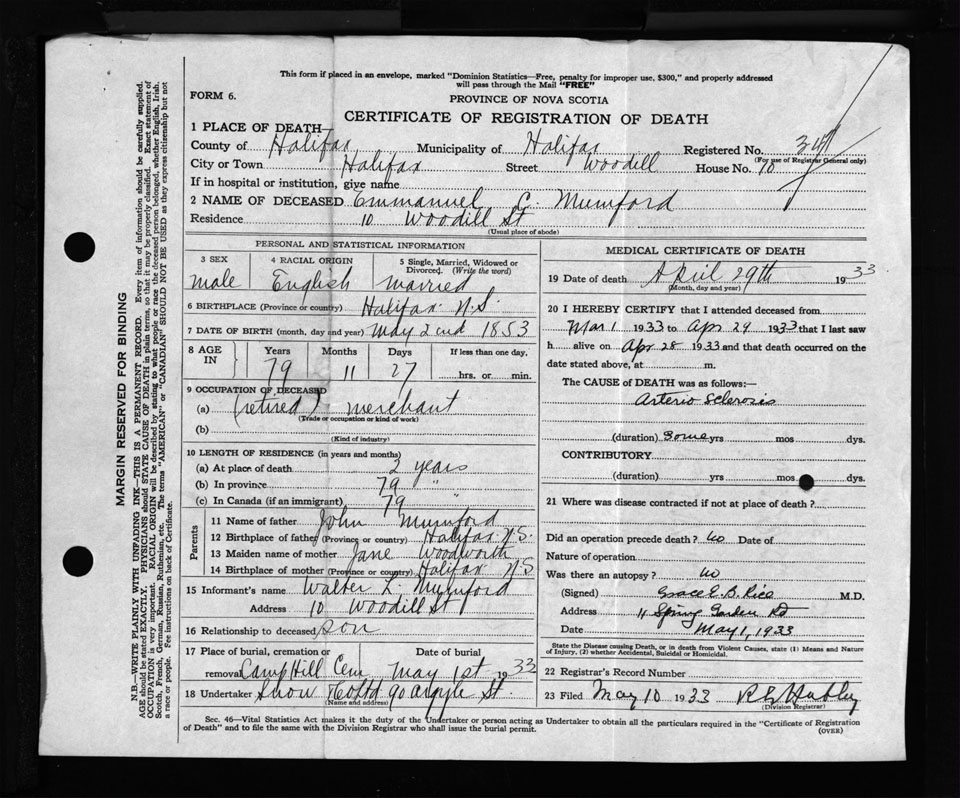 This form if placed in an envelope, marked "Dominion Statistics—Free, penalty for improper use, $300," and properly addressed
will pass through the Mail "FREE"
FORM 6.
PROVINCE OF NOVA SCOTIA
CERTIFICATE OF REGISTRATION OF DEATH
1 PLACE OF DEATH
County of Halifax Municipality of Halifax Registered No.
(For use of Registrar General only)
City or Town Halifax Street Woodill House No. 10
If in hospital or institution, give name
2 NAME OF DECEASED Emmanuel C. Mumford
Residence 10 Woodill St
(Usual place of abode)
PERSONAL AND STATISTICAL INFORMATION
3 SEX 4 RACIAL ORIGIN 5 Single, Married, Widowed or
Divorced. (Write the word)
male English married
6 BIRTHPLACE (Province or country) Halifax N.S.
7 DATE OF BIRTH (month, day and year) May 2nd 1853
8 AGE IN Years Months Days If less than one day,
79 11 27 hrs. or min.
9 OCCUPATION OF DECEASED
(a) (retired) merchant
(Trade or occupation or kind of work)
(b)
(Kind of industry)
10 LENGTH OF RESIDENCE (in years and months)
(a) At place of death 2 years
(b) In province 79 "
(c) In Canada (if an immigrant) 79 "
Parents
11 Name of father John Mumford
12 Birthplace of father (Province or country) Halifax N.S.
13 Maiden name of mother Jane Woodworth
14 Birthplace of mother (Province or country) Halifax N.S
15 Informant's name Walter L. Mumford
Address 10 Woodill St
16 Relationship to deceased son
17 Place of burial, cremation or Date of burial
removal Camp Hill Cem May 1st 1933
18 Undertaker Snow Co Ltd 90 Argyle St.
(Name and address)
MEDICAL CERTIFICATE OF DEATH
19 Date of death April 29th 1933
(Month, day and year)
20 I HEREBY CERTIFY that I attended deceased from
Mar 1 1933 to Apr 29 1933 that I last saw
h alive on Apr 28 1933 and that death occurred on the
date stated above, at m.
The CAUSE of DEATH was as follows:—
Arterio Sclerosis
(duration) Some yrs mos dys.
CONTRIBUTORY
(duration) yrs mos dys.
21 Where was disease contracted if not at place of death?
Did an operation precede death? No Date of
Nature of operation
Was there an autopsy? No
(Signed) Grace E. B. Rice M.D.
Address 11 Spring Garden Rd
Date May 1, 1933
State the Disease causing Death, or in death from Violent Causes, state (1) Means and Nature
of Injury, (2) whether Accidental, Suicidal or Homicidal.
22 Registrar's Record Number
23 Filed May 10 1933
(Division Registrar)
Sec. 46—Vital Statistics Act makes it the duty of the Undertaker or person acting as Undertaker to obtain all the particulars required in the "Certificate of Registration
of Death" and to file the same with the Division Registrar who shall issue the burial permit.
(OVER)
MARGIN RESERVED FOR BINDING
N.B.—WRITE PLAINLY WITH UNFADING INK—THIS IS A PERMANENT RECORD. Every item of information should be carefully supplied.
AGE should be stated EXACTLY. PHYSICIANS should STATE CAUSE OF DEATH in plain terms, so that it may be properly classified. Exact statement of
OCCUPATION is very important. RACIAL ORIGIN will be described by stating to what people or race the deceased person belonged, whether English, Irish,
Scotch, French, German, Russian, Ruthenian, etc. The terms "AMERICAN" or "CANADIAN" SHOULD NOT BE USED as they express citizenship but not
a race or people. See instructions on back of Certificate.